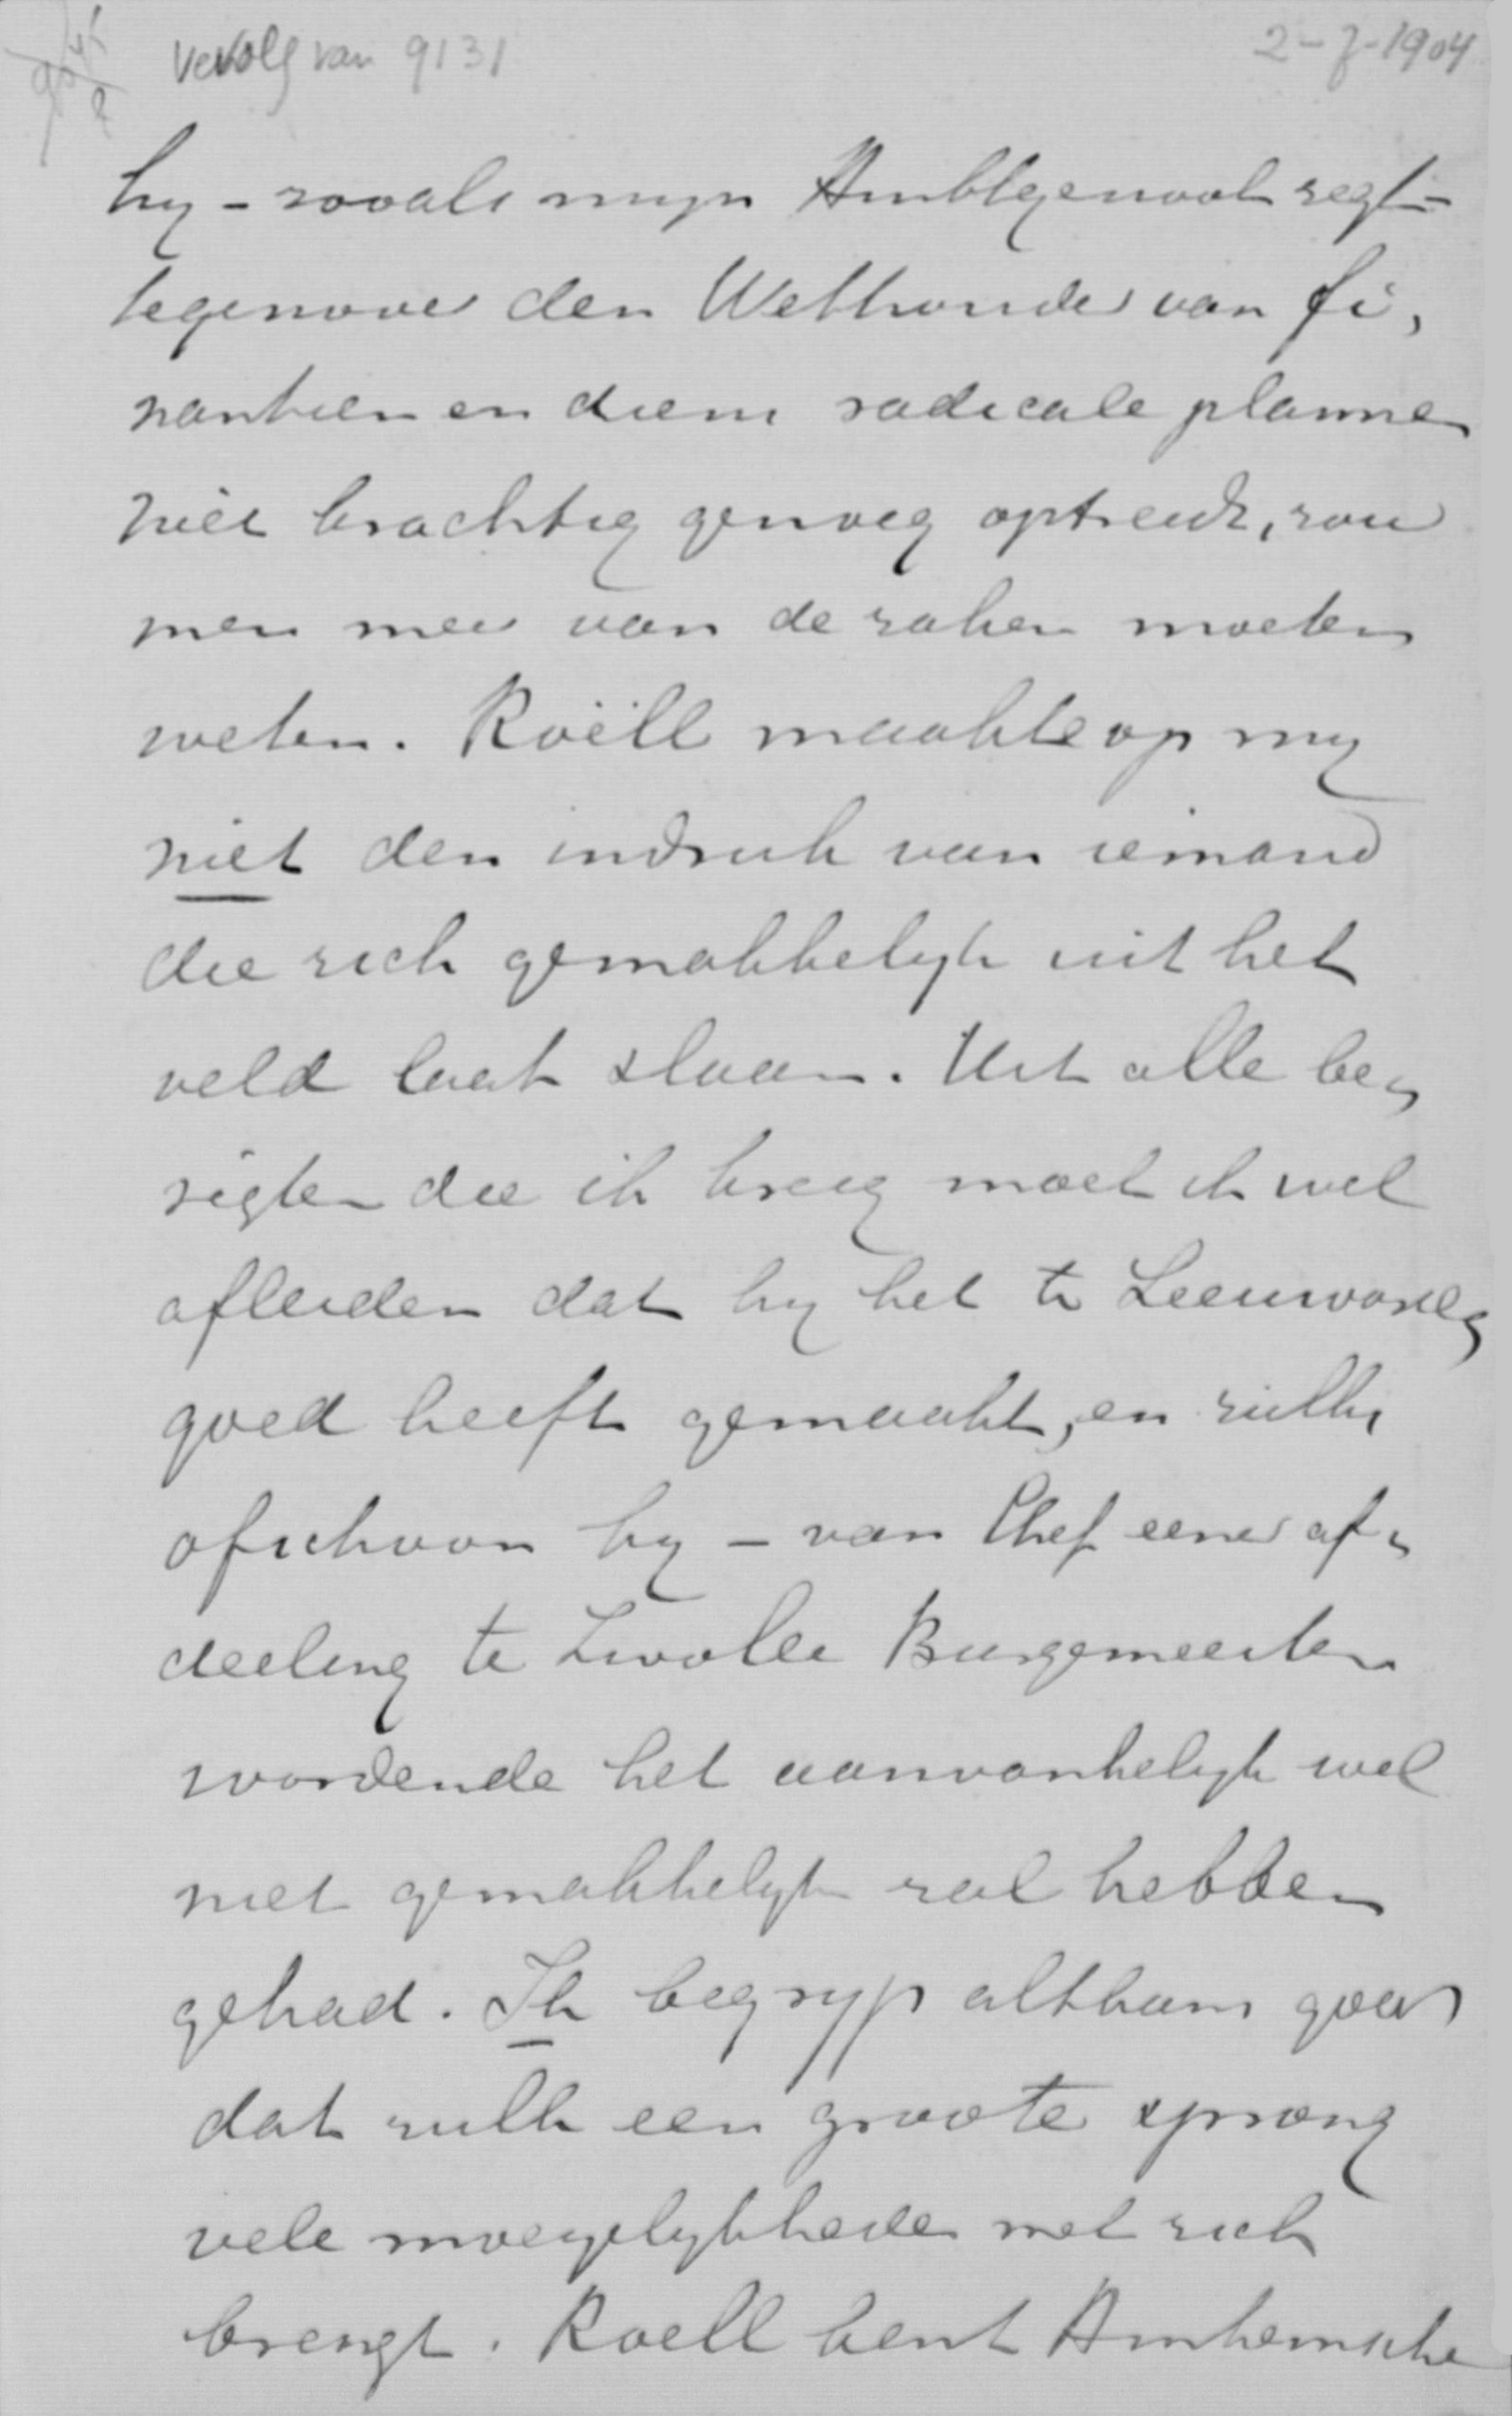 Vervolg van 9131
2-7-1904
hy - zooals myn Ambtgenoot zegt -
tegenover den Wethouder van fi,
nantien en diens radicale plannen
niet krachtig genoeg optreedt, zou
men meer van de zaken moeten
weten. Roëll maakte op my
niet den indruk van iemand
die zich gemakkelyk uit het
veld laat slaan. Uit alle be,
rigten die ik kreeg moet ik wel
afleiden dat hy het te Leeuward,
goed heeft gemaakt, en zulks
ofschoon hy - van Chef eener af,
deeling te Zwolle Burgemeester
wordende het aanvankelyk wel
niet gemakkelyk zal hebben
gehad. Ik begryp althans goed
dat zulk een groote sprong
vele moeyelykheden met zich
brengt. Roell kent Arnhemsche